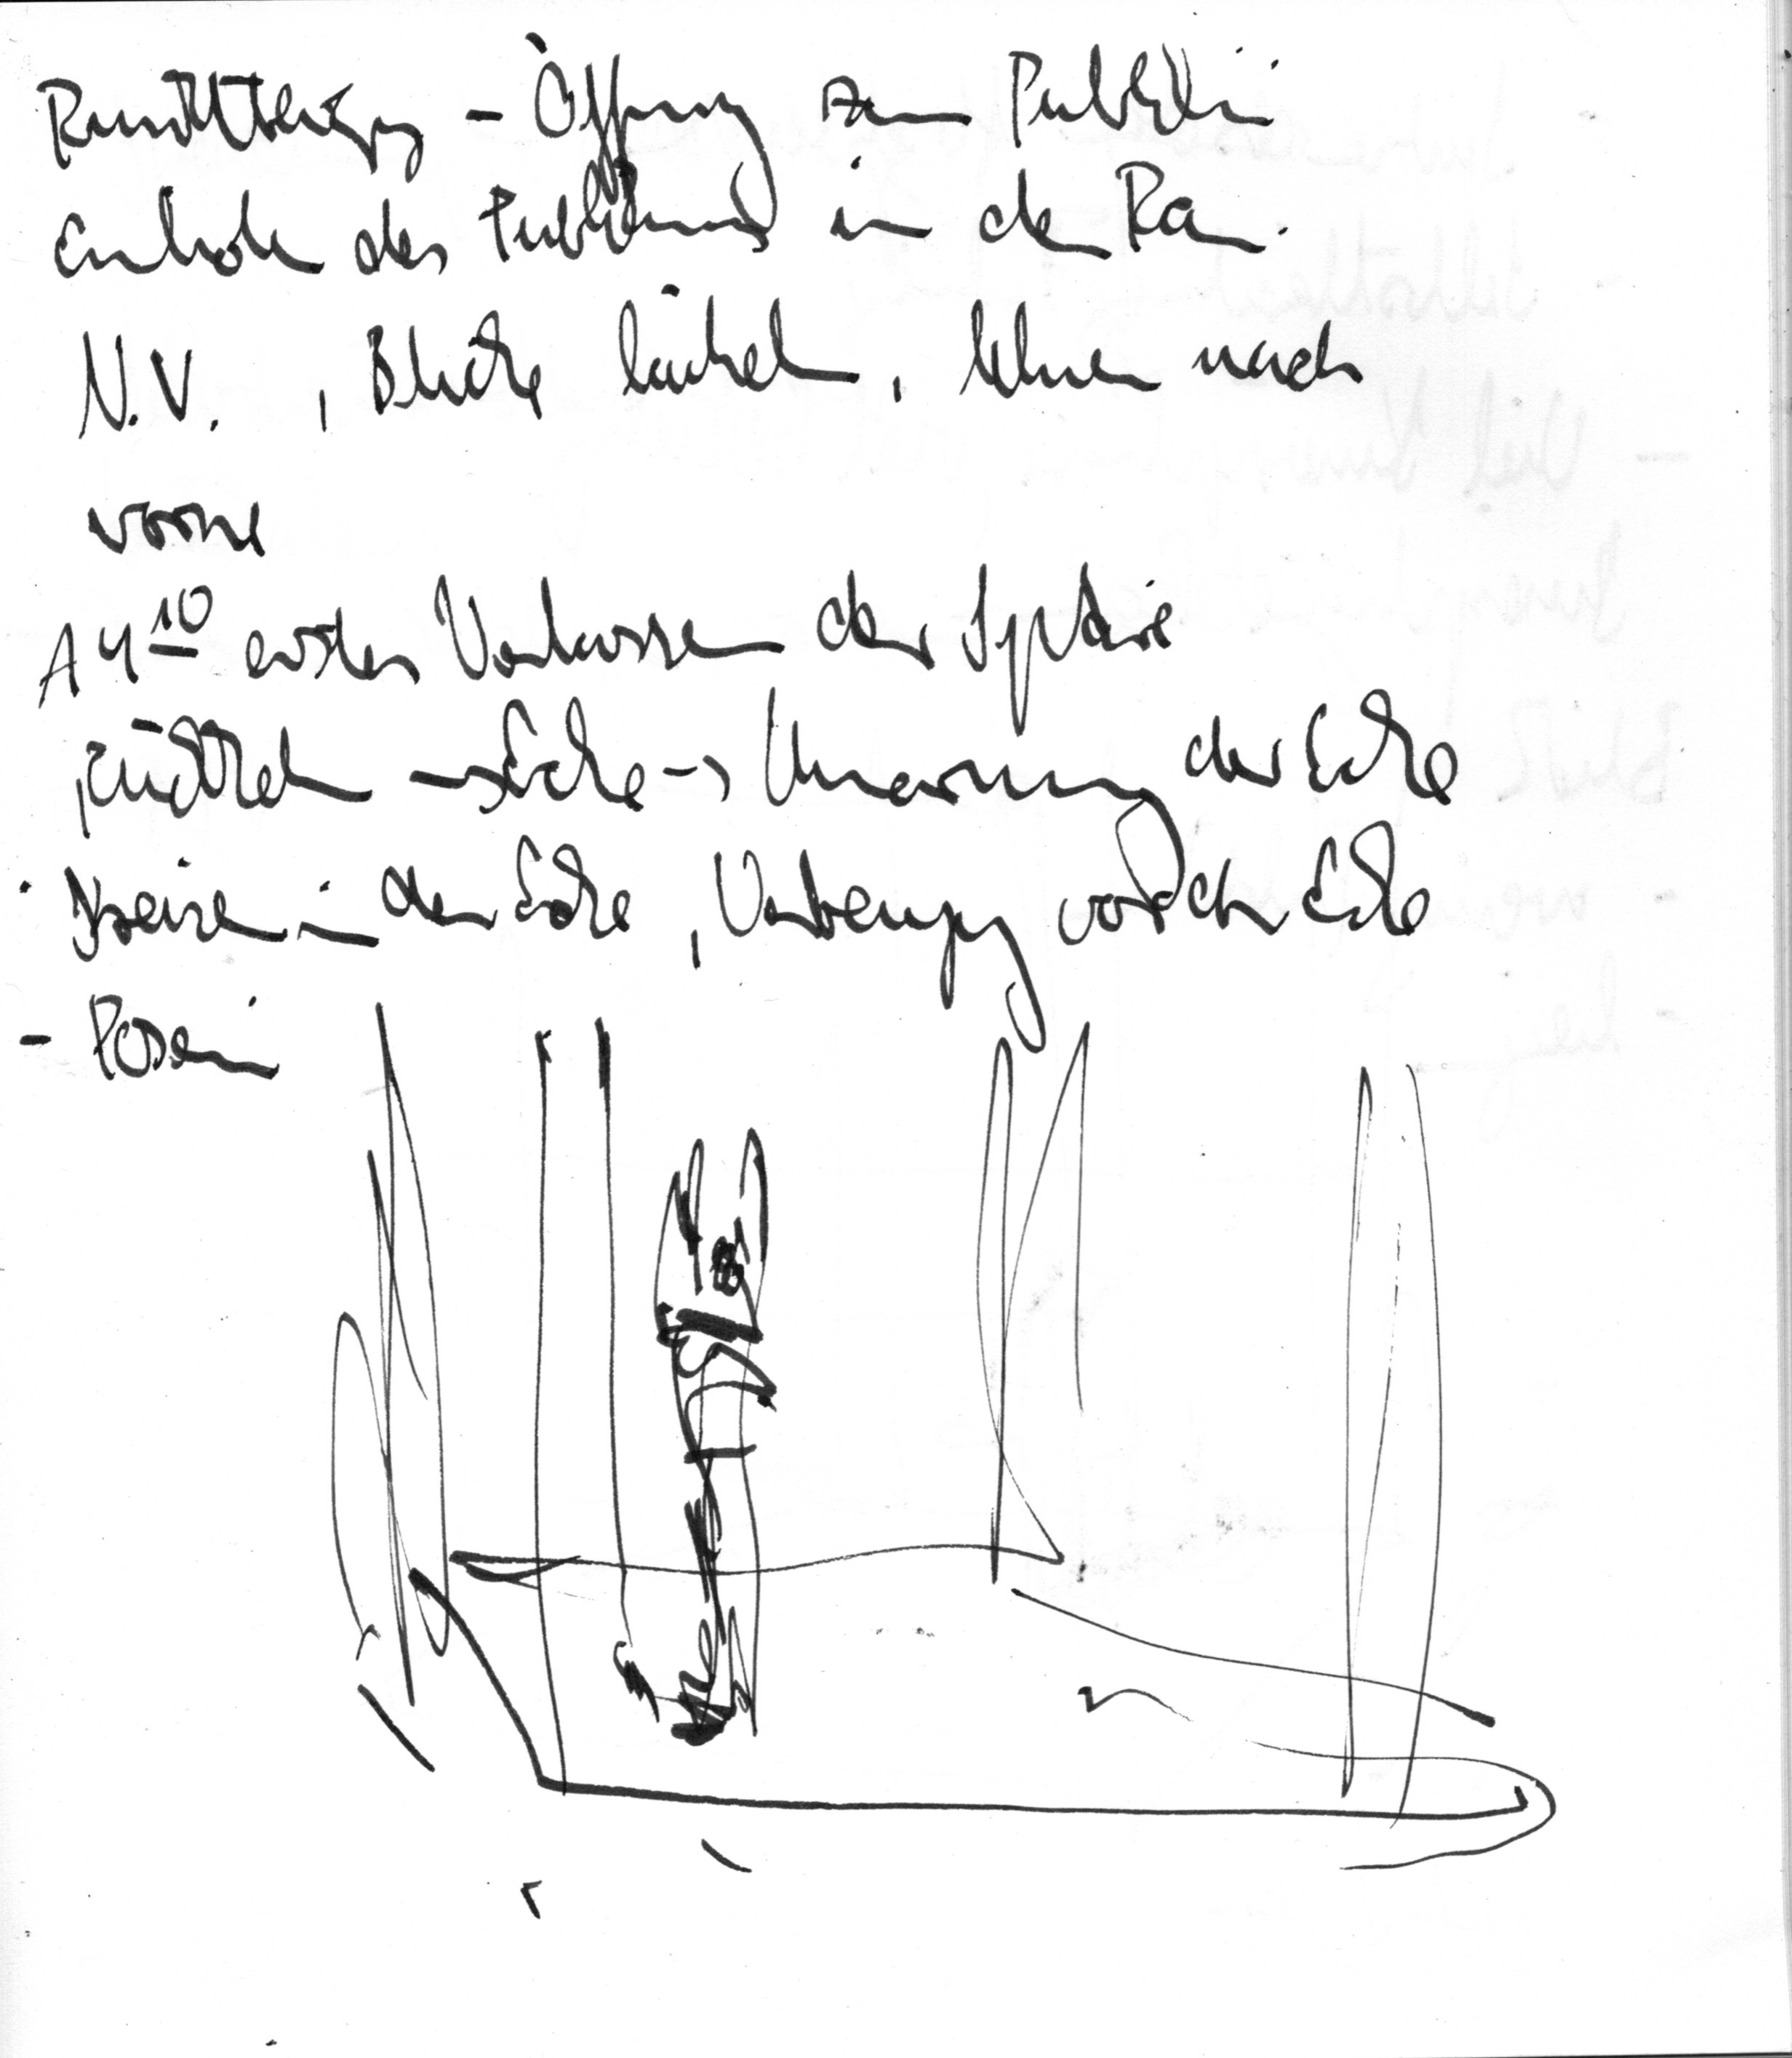 - Öffnung zum Publikum
Einholen des Publikums in den Raum.
N.V. , Blicke lächeln , lehnen nach
vorne
A 4 10 erstes Verlassen der Sphäre
, rücken → Ecke → Umarmung der Ecke
in der Ecke , Verbeugung vor der Ecke
- Posen